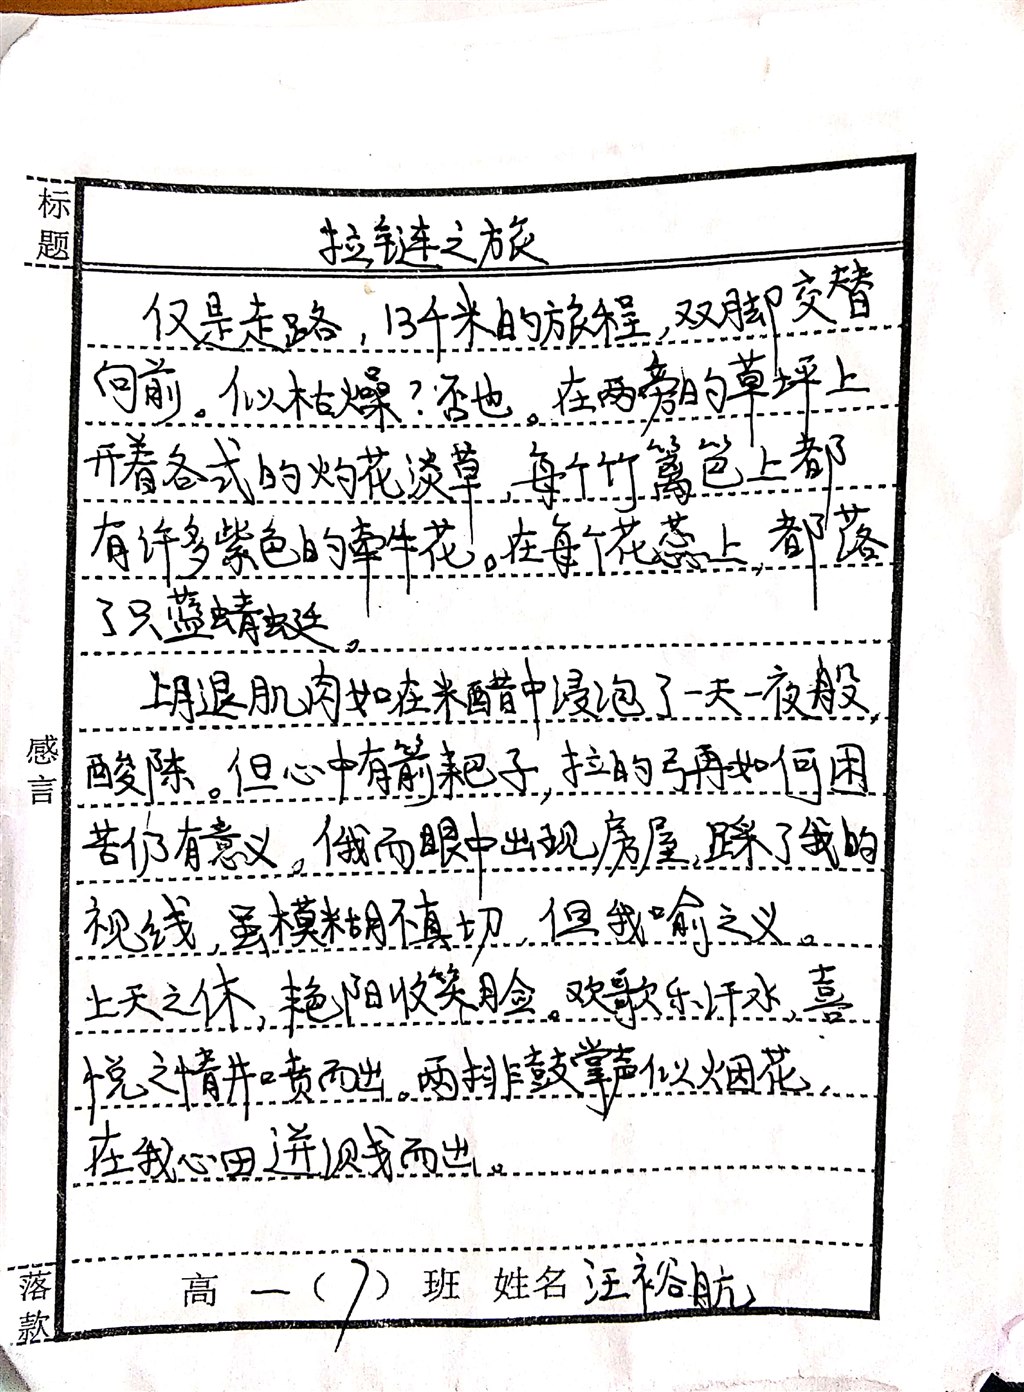 标题
拉链之旅
仅是走路，13千米的旅程，双脚交替
向前。似枯燥？否也。在两旁的草坪上
开着各式的灼花淡草，每个竹篱笆上都
有许多紫色的牵牛花。在每个花蕊上，都落
了只蓝蜻蜓。
感言
退肌肉如在米醋中浸泡了一天一夜般，
酸陈。但心中有箭耙子，拉的弓再如何困
苦仍有意义。俄而眼中出现房屋，踩了我的
视线，虽模糊不真切，但我喻之义。
上天之休，艳阳收笑脸。欢歌乐汗水，喜
悦之情井喷而出。两排鼓掌声似烟花，
在我心田迸溅而出。
落款
高一（7）班 姓名 汪裕航